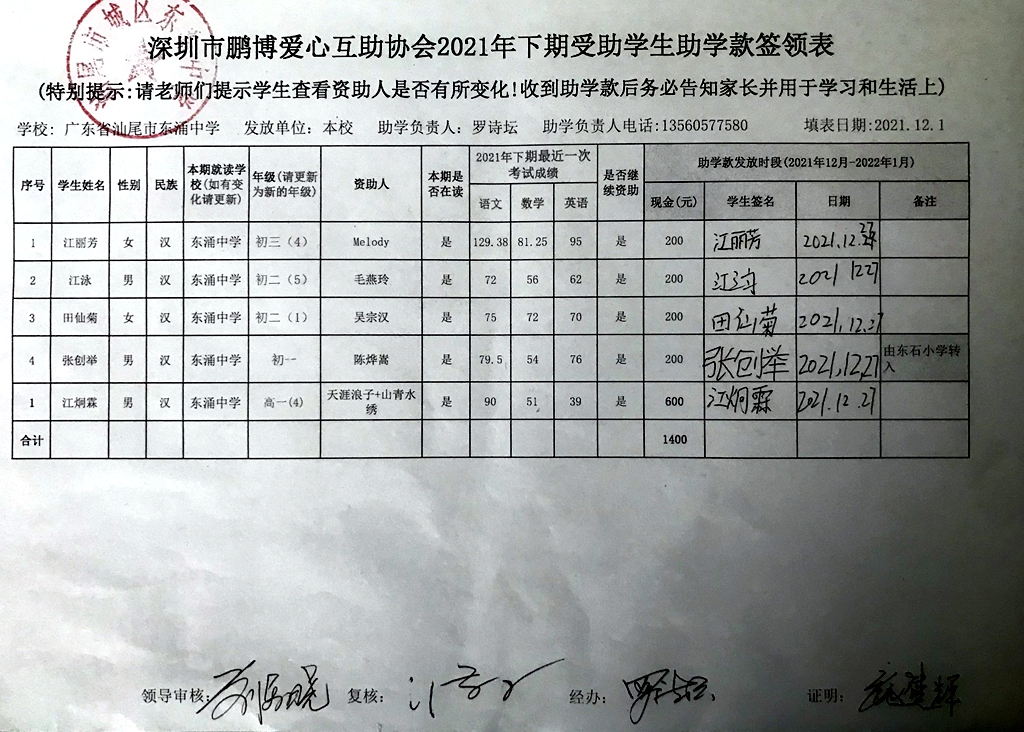 深圳市鹏博爱心互助协会2021年下期受助学生助学款签领表
(特别提示:请老师们提示学生查看资助人是否有所变化!收到助学款后务必告知家长并用于学习和生活上)
学校: 广东省汕尾市东涌中学 发放单位: 本校 助学负责人: 罗诗坛 助学负责人电话:13560577580 填表日期:2021.12.1
序号 学生姓名 性别 民族 本期就读学校(如有变化请更新) 年级(请更新为新的年级) 资助人 本期是否在读 2021年下期最近一次考试成绩 是否继续资助 助学款发放时段(2021年12月-2022年1月)
语文 数学 英语 现金(元) 学生签名 日期 备注
1 江丽芳 女 汉 东涌中学 初三（4） Melody 是 129.38 81.25 95 是 200 江丽芳 2021.12.
2 江泳 男 汉 东涌中学 初二（5） 毛燕玲 是 72 56 62 是 200 江泳 2021 1227
3 田仙菊 女 汉 东涌中学 初二（1） 吴宗汉 是 75 72 70 是 200 田仙菊 2021.12.27
4 张创举 男 汉 东涌中学 初一- 陈烨嵩 是 79.5 54 76 是 200 张创举 2021.12.27 由东石小学转入
1 江炯霖 男 汉 东涌中学 高一(4) 天涯浪子+山青水绣 是 90 51 39 是 600 江炯霖 2021.12.27
合计 1400
领导审核: 复核: 经办: 证明: